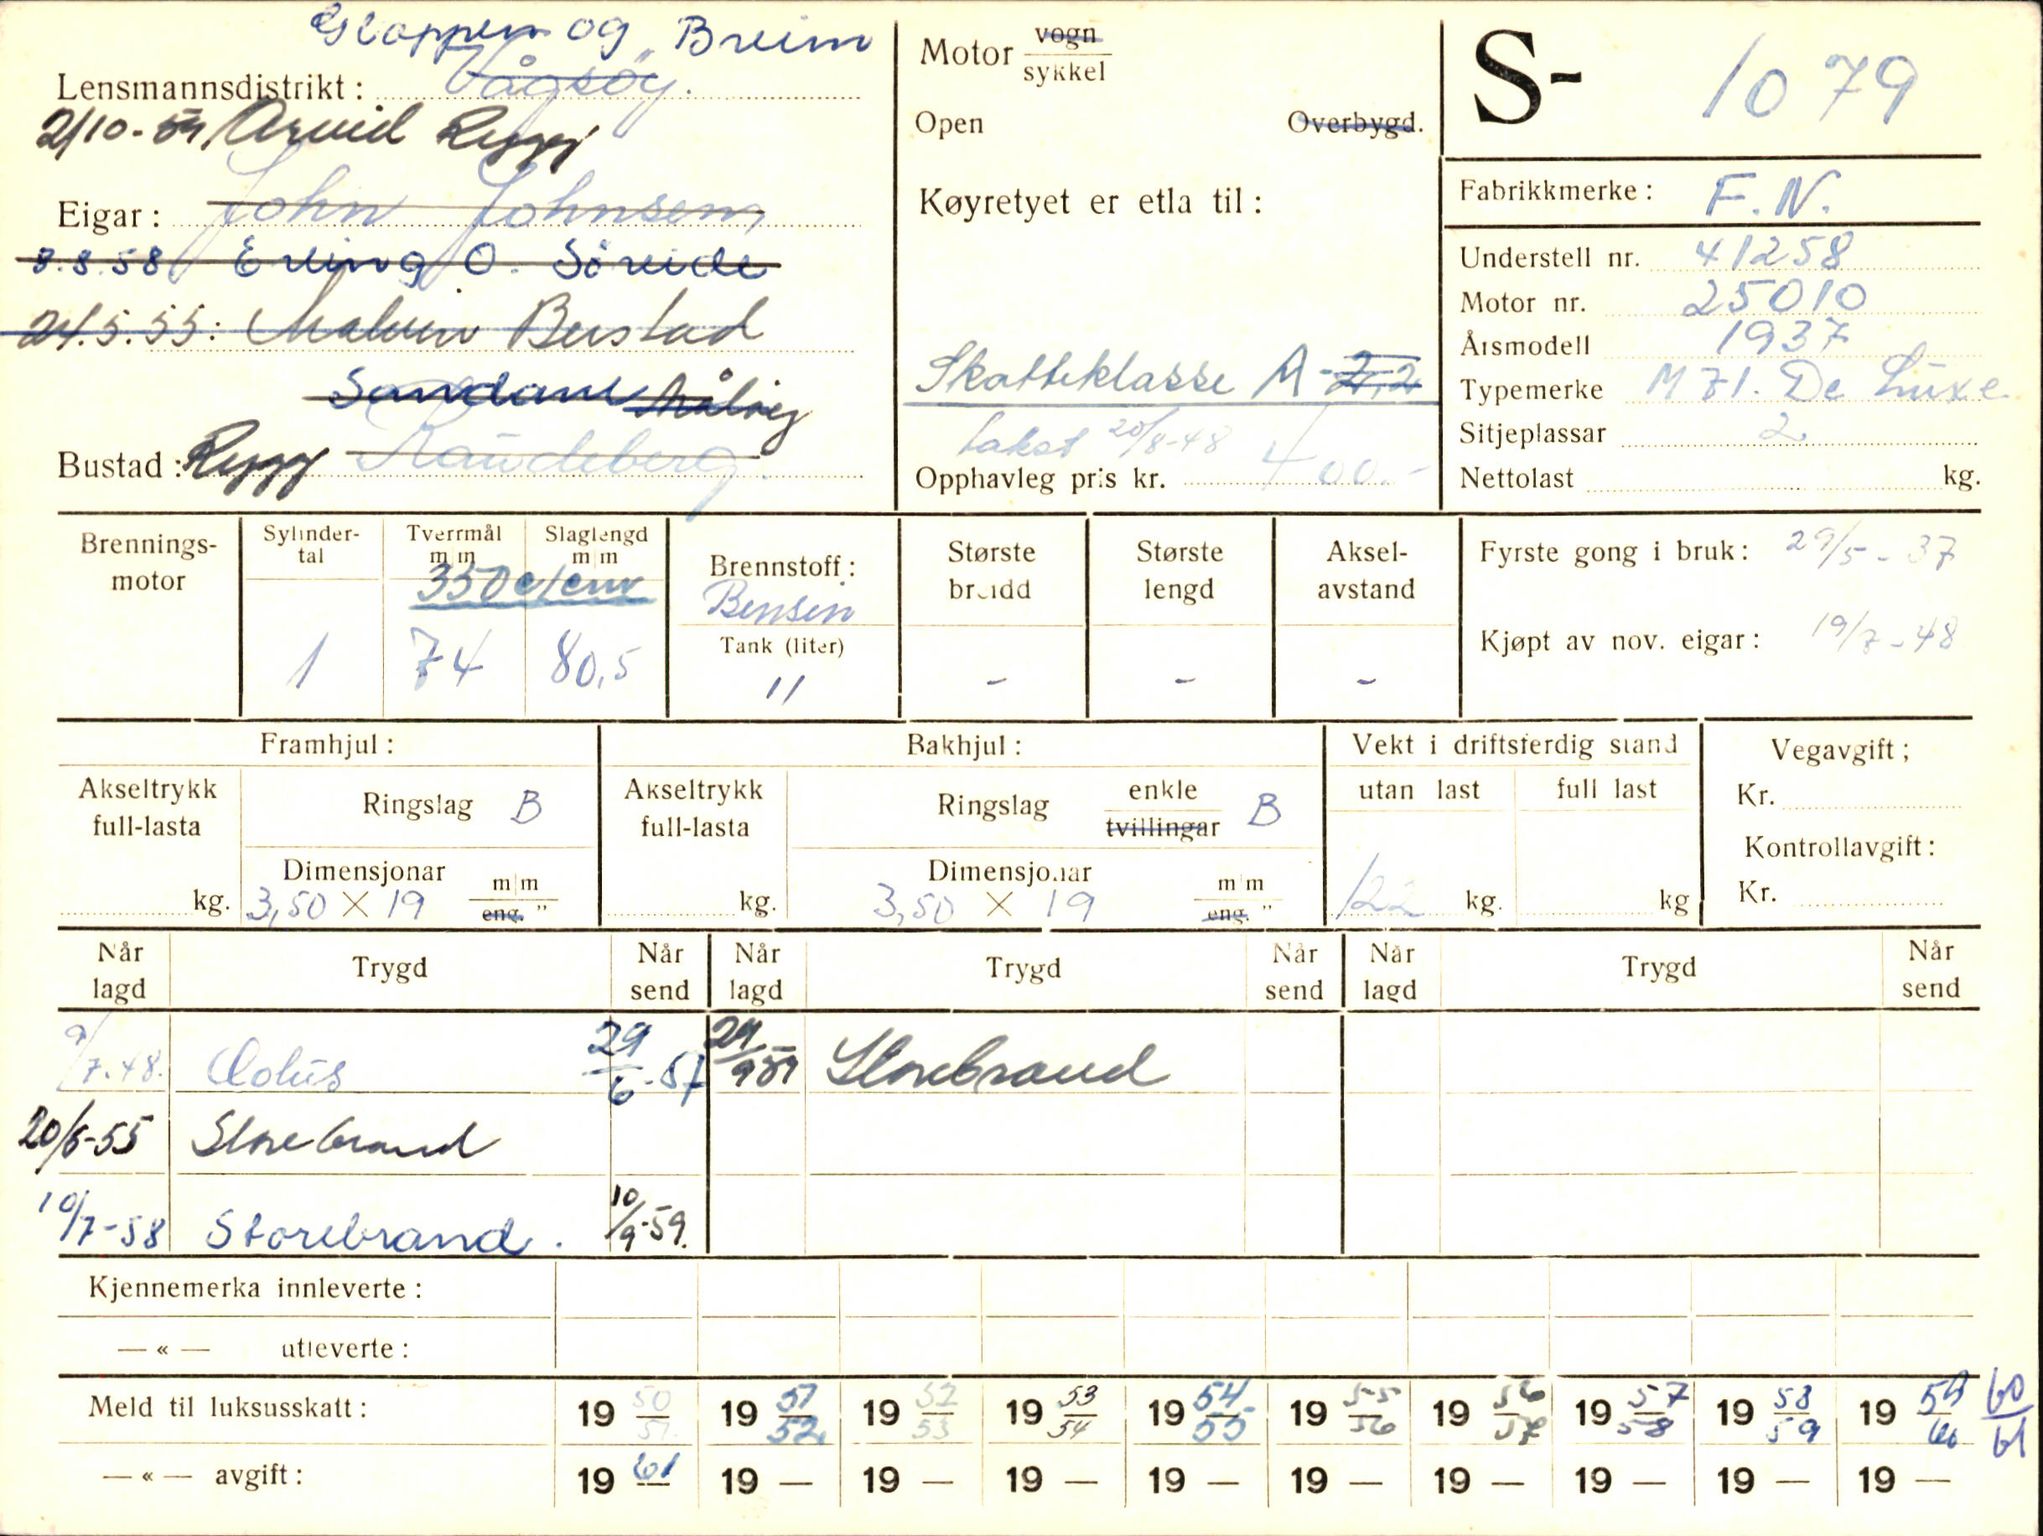 Gloppen og Breim
Lensmannsdistrikt: Vågsøy.
2/10-59, Arvid Rygg
Eigar: John Johnsen,
8.8.58 Erling O. Söreide
24.5.55: Malvin Berstad
Sandane
Bustad: Rygg Raudeberg.
Motor vogn
sykkel
Open Overbygd.
Køyretyet er etla til:
Skatteklasse A-2,2
takst 20/8-48
Opphavleg pris kr. 400.-
S- 1079
Fabrikkmerke: F.N.
Understell nr. 41258
Motor nr. 25010
Årsmodell 1937
Typemerke M 71. De Luxe
Sitjeplassar 2
Nettolast kg.
Brennings-
motor
Sylinder-
tal
1
Tverrmål
m|m
Slaglengd
m|m
350 c/cm
74 80,5
Brennstoff:
Bensin
Tank (liter)
11
Største
breidd
-
Største
lengd
-
Aksel-
avstand
-
Fyrste gong i bruk: 29/5-37
Kjøpt av nov. eigar: 19/7-48
Framhjul:
Akseltrykk
full-lasta
kg.
Ringslag B
Dimensjonar
3,50 X 19 m|m
eng. "
Bakhjul:
Akseltrykk
full-lasta
kg.
Ringslag enkle
tvillingar B
Dimensjonar
3,50 X 19 m|m
eng. "
Vekt i driftsferdig stand
utan last full last
122 kg. kg
Vegavgift;
Kr.
Kontrollavgift:
Kr.
Når
lagd Trygd Når
send Når
lagd Trygd Når
send Når
lagd Trygd Når
send
9/7.48. Æolus 29/6-57 24/9 59 Storebrand
20/6-55 Storebrand
10/7-58 Storebrand. 10/9-59.
Kjennemerka innleverte:
— « — utleverte:
Meld til luksusskatt: 19 50/51. 19 51/52. 19 52/53 19 53/54 19 54/55 19 55/56 19 56/57 19 57/58 19 58/59 19 59/60 60/61
— « — avgift: 19 61 19 — 19 — 19 — 19 — 19 — 19 — 19 — 19 — 19 —